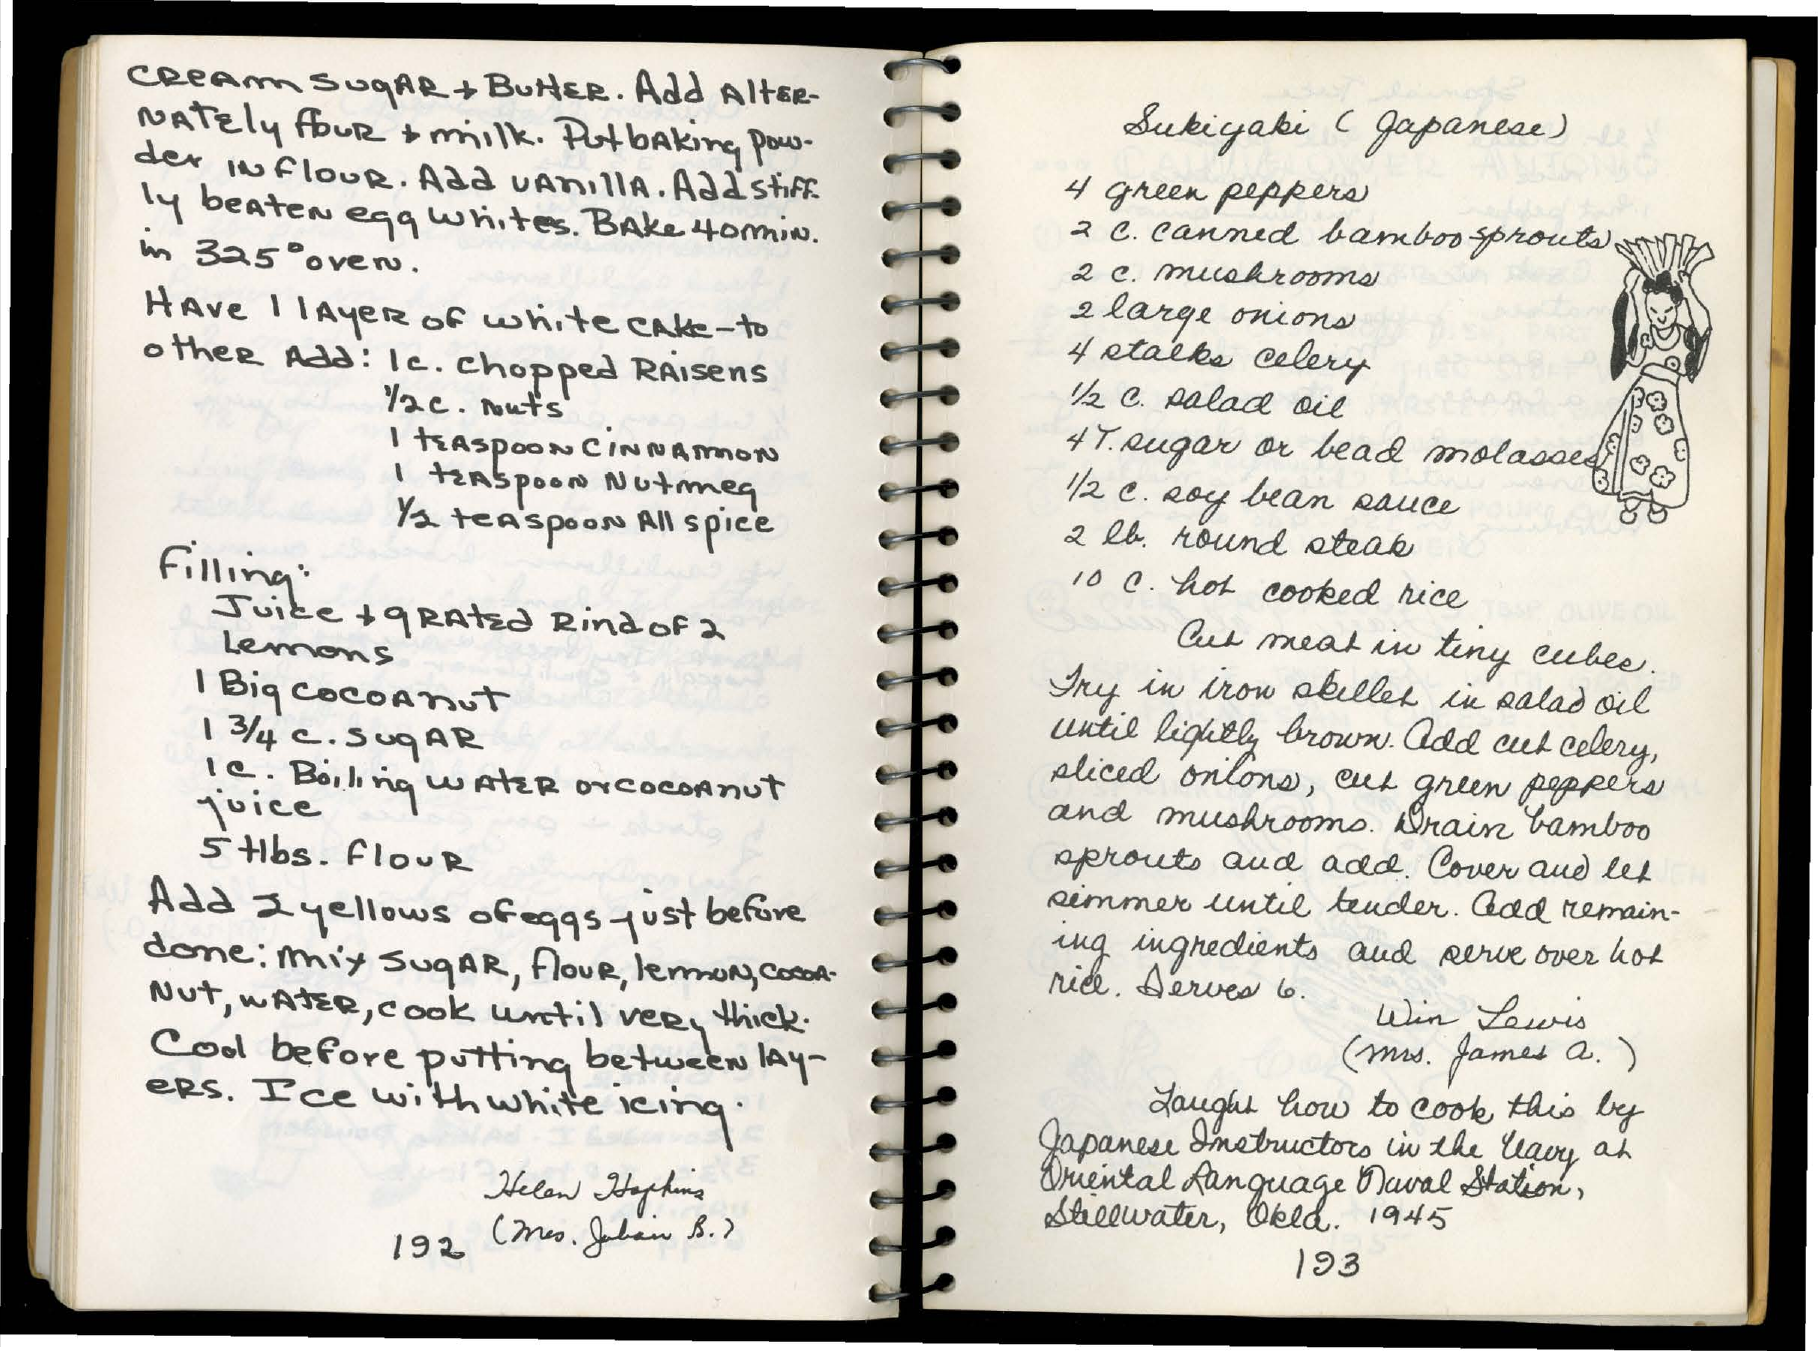 Cream sugar + Butter. Add alter-
nately flour + milk. Put baking pow-
der in flour. Add vanilla. Add stiff-
ly beaten egg whites. Bake 40 min.
in 325° oven.
Have 1 layer of white cake - to
other Add: 1c. chopped Raisens
1/2 c. nuts
1 teaspoon Cinnamon
1 teaspoon Nutmeg
1/2 teaspoon All spice
Filling:
Juice + grated Rind of 2
Lemons
1 Big cocoanut
1 3/4 c. sugar
1c. Boiling water or cocoanut
juice
5 tlbs. flour
Add 2 yellows of eggs just before
done: mix sugar, flour, lemon, cocoa-
nut, water, cook until very thick.
Cool before putting between lay-
ers. Ice with white icing.
Helen Hopkins
(Mrs. Julian B.)
192
Sukiyaki (Japanese)
4 green peppers
2 c. canned bamboo sprouts
2 c. mushrooms
2 large onions
4 stalks celery
1/2 c. salad oil
4 T. sugar or bead molasses
1/2 c. soy bean sauce
2 lb. round steak
10 c. hot cooked rice
Cut meat in tiny cubes.
Fry in iron skillet in salad oil
until lightly brown. Add cut celery,
sliced onions, cut green peppers
and mushrooms. Drain bamboo
sprouts and add. Cover and let
simmer until tender. Add remain-
ing ingredients and serve over hot
rice. Serves 6.
Win Lewis
(Mrs. James A.)
Taught how to cook this by
Japanese Instructors in the Navy at
Oriental Language Naval Station,
Stillwater, Okla. 1945
193